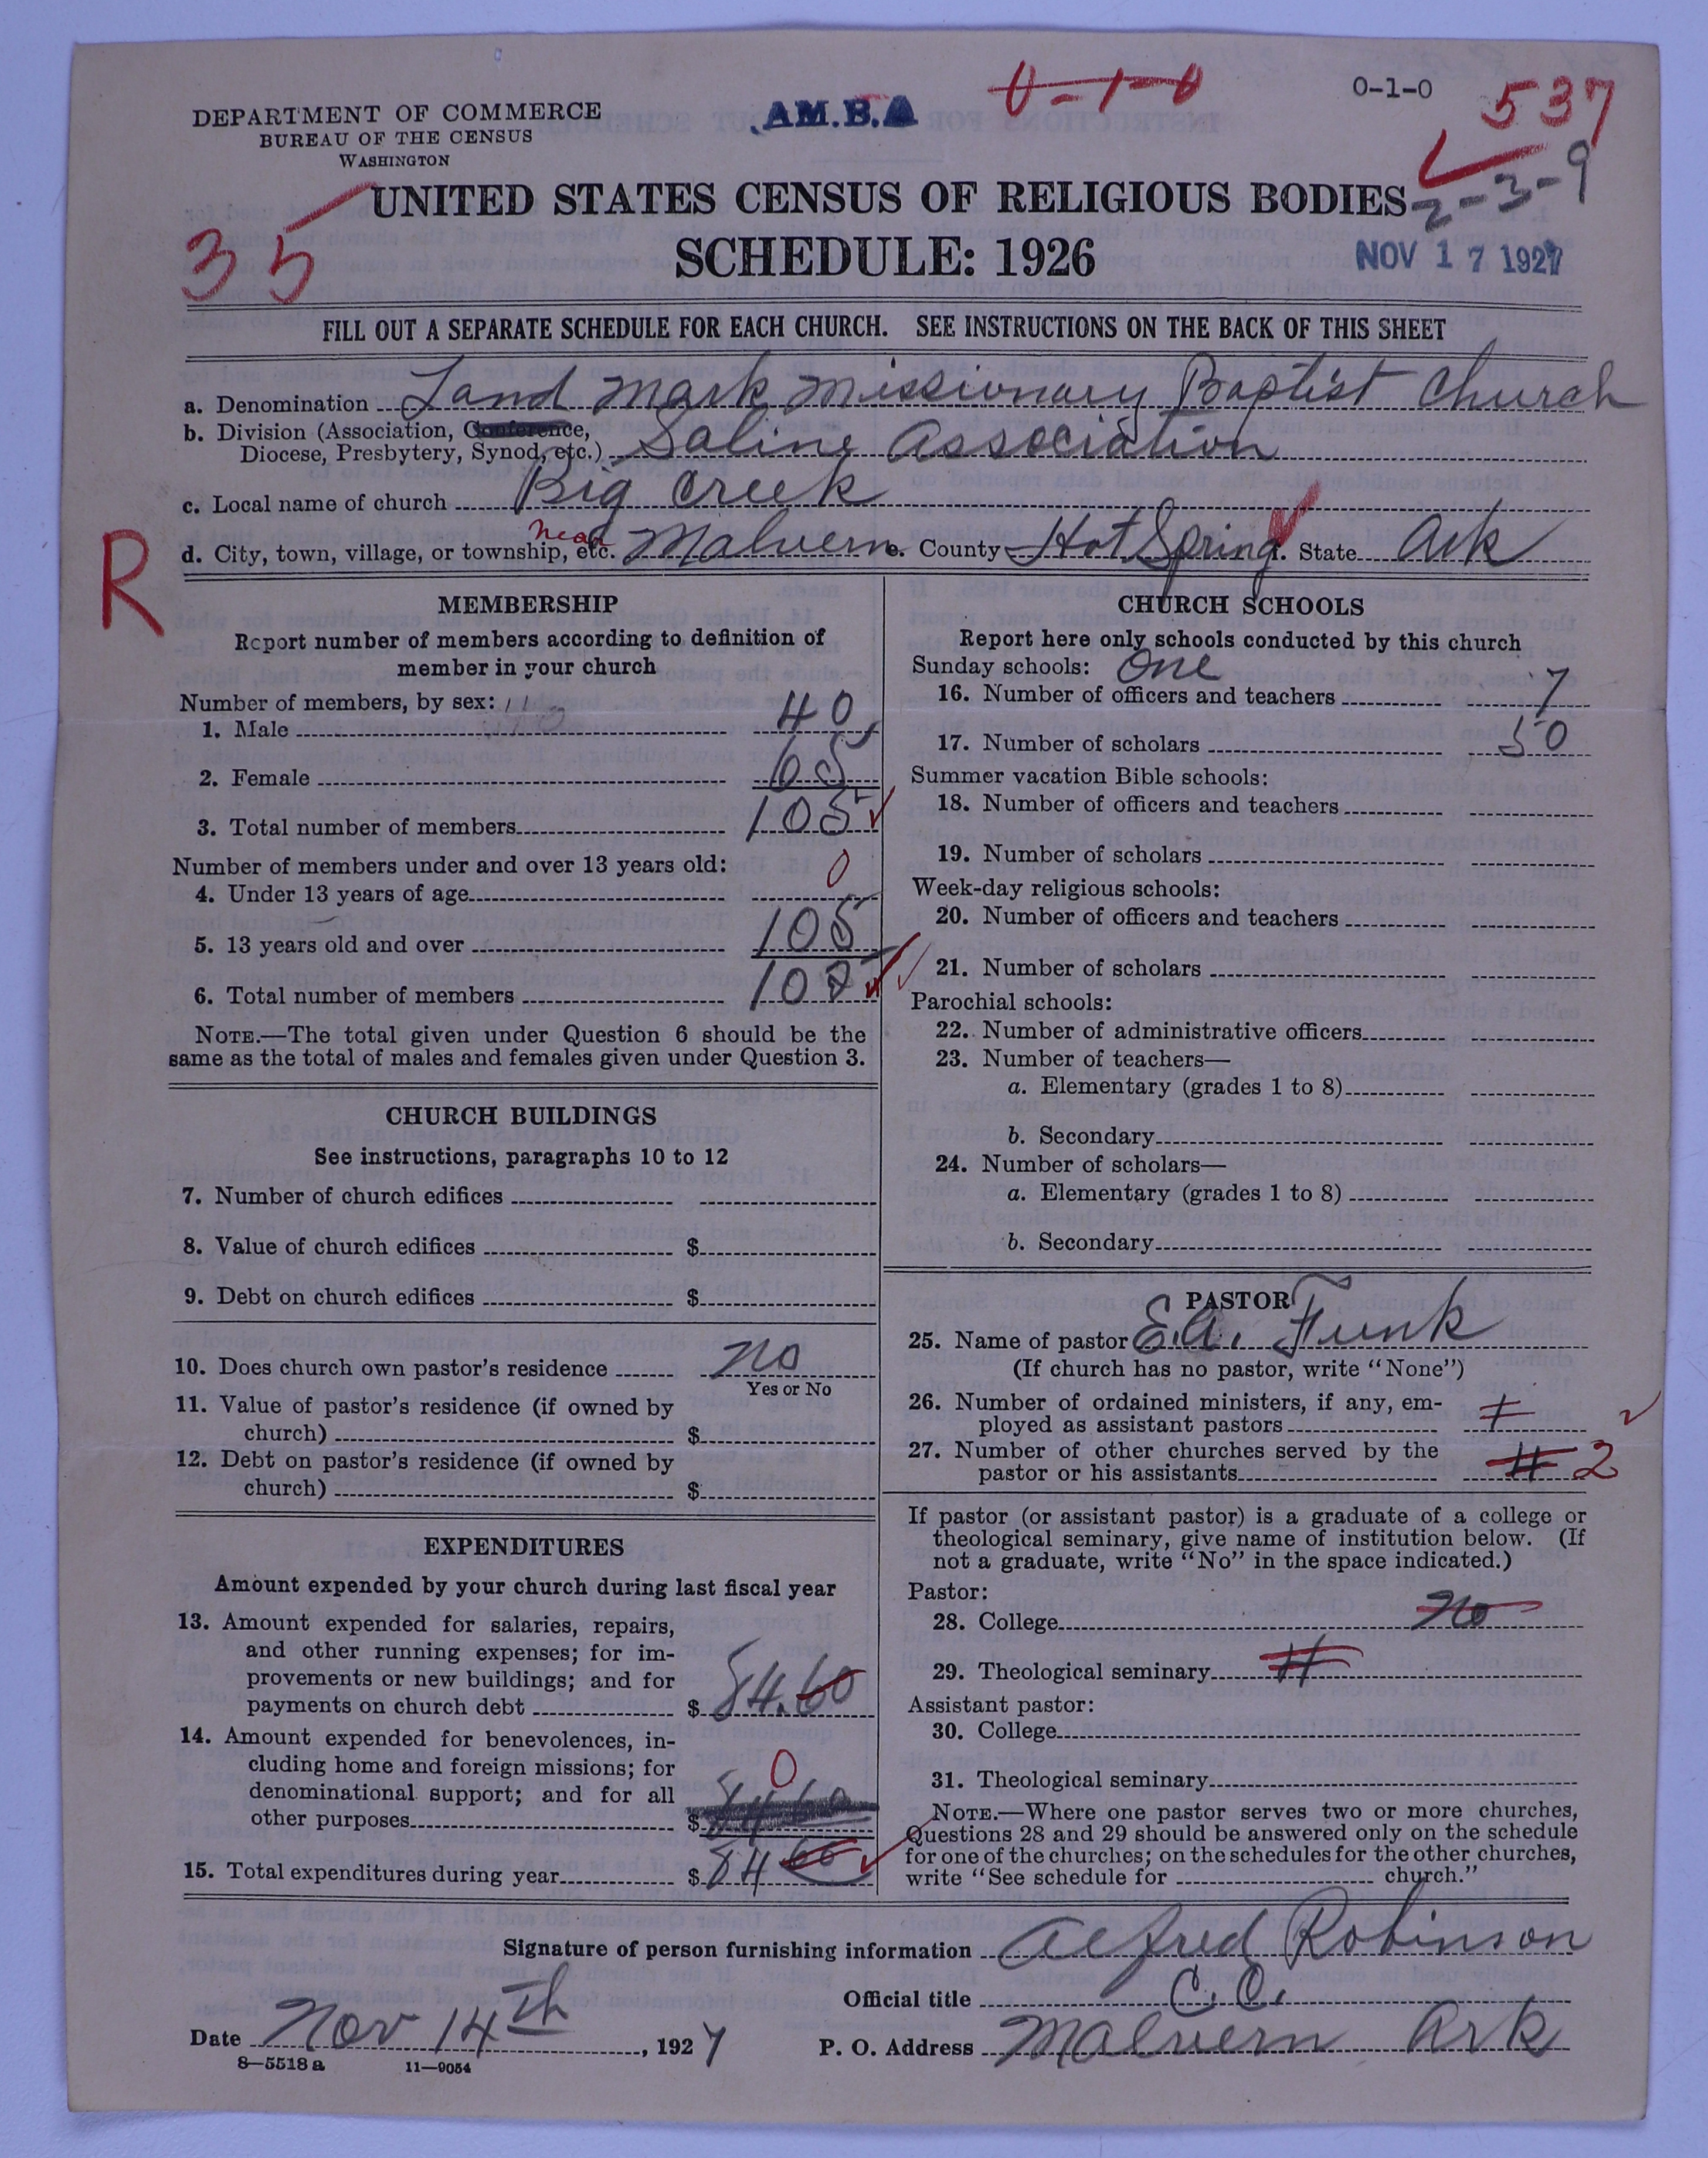 DEPARTMENT OF COMMERCE
BUREAU OF THE CENSUS
WASHINGTON
AM.B.A
0-1-0
0-1-0
537
2-3-9
35
UNITED STATES CENSUS OF RELIGIOUS BODIES
SCHEDULE: 1926
NOV 17 1927
FILL OUT A SEPARATE SCHEDULE FOR EACH CHURCH. SEE INSTRUCTIONS ON THE BACK OF THIS SHEET
a. Denomination Land Mark Missionary Baptist Church
b. Division (Association, Conference,
Diocese, Presbytery, Synod, etc.) Saline Association
c. Local name of church Big Creek
d. City, town, village, or township, etc. near Malvern e. County Hot Spring f. State Ark
R
MEMBERSHIP
Report number of members according to definition of
member in your church
Number of members, by sex:
1. Male 40
2. Female 65
3. Total number of members 105
Number of members under and over 13 years old:
4. Under 13 years of age 0
5. 13 years old and over 105
6. Total number of members 105
NOTE.—The total given under Question 6 should be the
same as the total of males and females given under Question 3.
CHURCH BUILDINGS
See instructions, paragraphs 10 to 12
7. Number of church edifices
8. Value of church edifices $
9. Debt on church edifices $
10. Does church own pastor's residence no
Yes or No
11. Value of pastor's residence (if owned by
church) $
12. Debt on pastor's residence (if owned by
church) $
EXPENDITURES
Amount expended by your church during last fiscal year
13. Amount expended for salaries, repairs,
and other running expenses; for im-
provements or new buildings; and for
payments on church debt $ 84.60
14. Amount expended for benevolences, in-
cluding home and foreign missions; for
denominational support; and for all
other purposes $ 84 60 0
15. Total expenditures during year $ 84 60
CHURCH SCHOOLS
Report here only schools conducted by this church
Sunday schools: One
16. Number of officers and teachers 7
17. Number of scholars 50
Summer vacation Bible schools:
18. Number of officers and teachers
19. Number of scholars
Week-day religious schools:
20. Number of officers and teachers
21. Number of scholars
Parochial schools:
22. Number of administrative officers
23. Number of teachers—
a. Elementary (grades 1 to 8)
b. Secondary
24. Number of scholars—
a. Elementary (grades 1 to 8)
b. Secondary
PASTOR
25. Name of pastor E.A. Funk
(If church has no pastor, write "None")
26. Number of ordained ministers, if any, em-
ployed as assistant pastors
27. Number of other churches served by the
pastor or his assistants 2
If pastor (or assistant pastor) is a graduate of a college or
theological seminary, give name of institution below. (If
not a graduate, write "No" in the space indicated.)
Pastor:
28. College no
29. Theological seminary
Assistant pastor:
30. College
31. Theological seminary
NOTE.—Where one pastor serves two or more churches,
Questions 28 and 29 should be answered only on the schedule
for one of the churches; on the schedules for the other churches,
write "See schedule for church."
Signature of person furnishing information Alfred Robinson
Official title C.C.
Date Nov 14th, 1927 P. O. Address Malvern Ark
8—5518a 11—9054